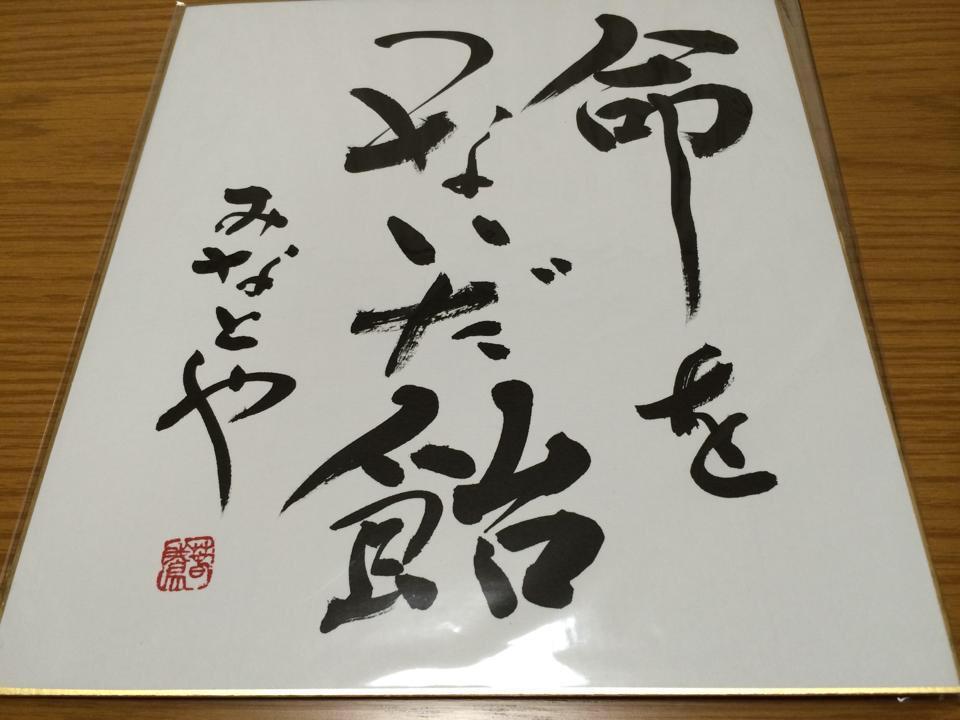 命を
つないだ飴
みなとや